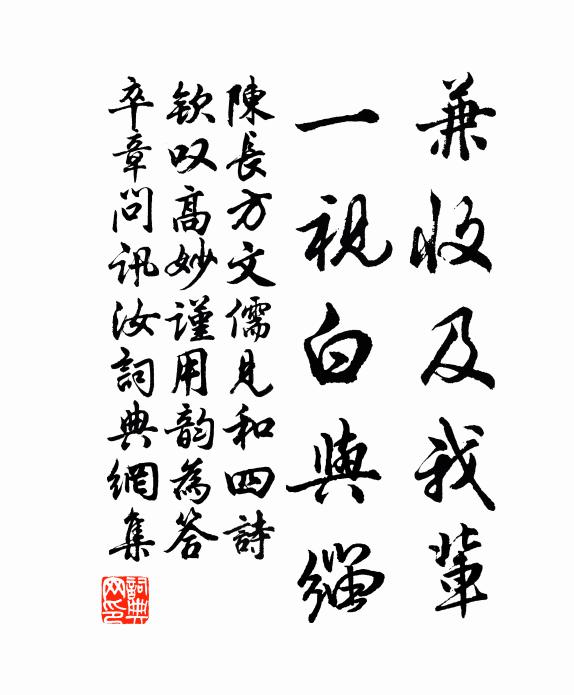 兼收及我輩
一視白與緇
陳長方文儒見和四詩
欽叹高妙謹用韵為答
卒章問訊汝詞典網集
詞典網印